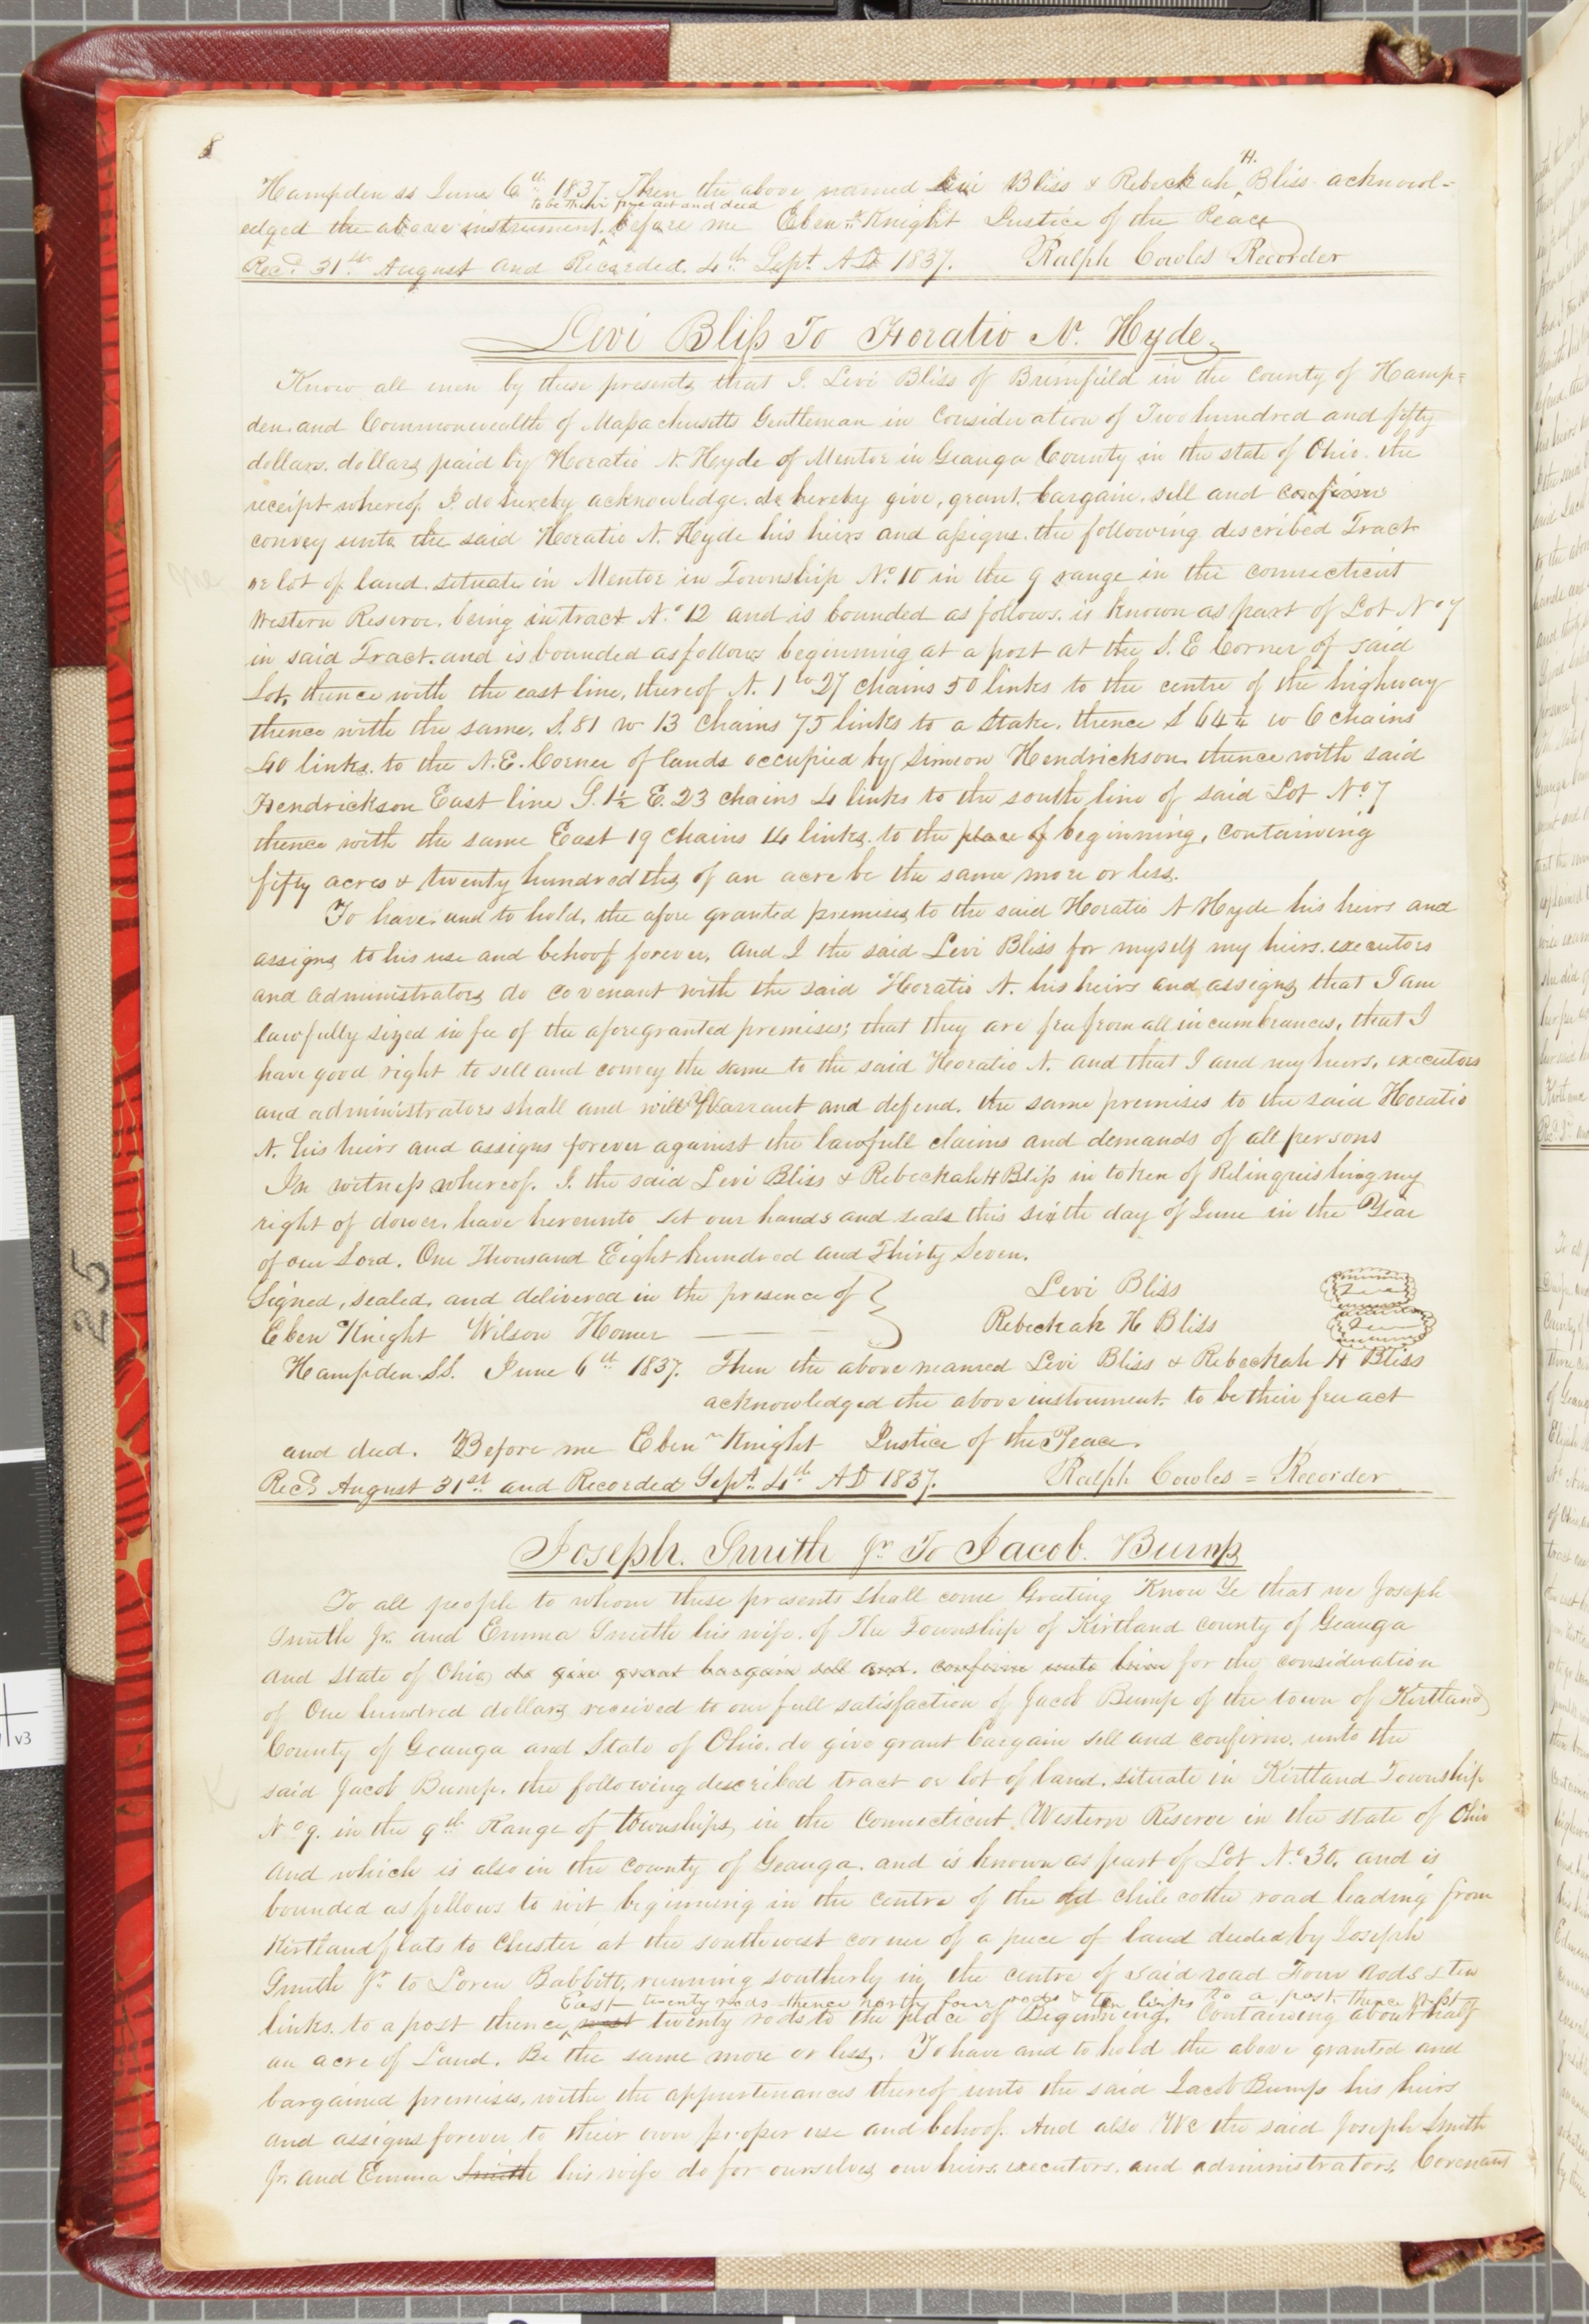 8
Hampden ss June 6th 1837. Then the above named Levi Bliss & Rebeckah H. Bliss acknowl=
to be their free act and deed
edged the above instrument. before me Eben.r Knight Justice of the Peace
Rec.d 31st August and Recorded. 4th Sept. AD 1837. Ralph Cowles Recorder
Levi Bliss To Horatio N. Hyde
Know all men by these presents that I. Levi Bliss of Brimfield in the County of Hamp=
den. and Commonwealth of Massachusetts Gentleman in Consideration of Two hundred and fifty
dollars. dollars paid by Horatio N. Hyde of Mentor in Geauga County in the state of Ohio. the
receipt whereof. I. do hereby acknowledge. do hereby give, grant. bargain. sell and confirm
convey unto the said Horatio N. Hyde his heirs and assigns. the following described Tract
or lot of land. situate in Mentor in Township No. 10 in the 9 range in the connecticut
Western Reserve. being in tract No. 12 and is bounded as follows. is known as part of Lot No 7
in said Tract. and is bounded as follows beginning at a post at the S. E Corner of said
Lot, thence with the east line, thereof N. 1 w 27 chains 50 links to the centre of the highway
thence with the same. S. 81 w 13 Chains 75 links to a stake. thence S 64 1/4 w 6 chains
40 links. to the N.E. Corner of lands occupied by Simeon Hendrickson. thence with said
Hendrickson East line S. 1 1/2 E. 23 chains 4 links to the south line of said Lot No 7
thence with the same East 19 chains 14 links. to the place of beginning, containing
fifty acres & twenty hundredths of an acre be the same more or less.
To have. and to hold, the afore granted premises to the said Horatio N Hyde his heirs and
assigns to his use and behoof forever. And I the said Levi Bliss for myself my heirs. executors
and administrators do covenant with the said Horatio N. his heirs and assigns that I am
lawfully sized in fee of the aforegranted premises; that they are free from all incumbrances, that I
have good right to sell and convey the same to the said Horatio N. and that I and my heirs, executors
and administrators shall and will Warrant and defend. the same premises to the said Horatio
N. his heirs and assigns forever against the lawfull claims and demands of all persons
In witness whereof. I. the said Levi Bliss & Rebeckah H Bliss in token of Relinquishing my
right of dower. have hereunto set our hands and seals this sixth day of June in the Year
of our Lord. One Thousand Eight hundred and Thirty Seven.
Signed, sealed. and delivered in the presence of Levi Bliss
Eben Knight Wilson Homer Rebeckah H Bliss
Hampden. SS. June 6th 1837. Then the above named Levi Bliss & Rebeckah H Bliss
acknowledged the above instrument. to be their free act
and deed. Before me Eben.r Knight Justice of the Peace.
Rec.d August 31st and Recorded Sept. 4th AD 1837. Ralph Cowles = Recorder
Joseph. Smith Jr. To Jacob. Bump
To all people to whom these presents shall come Greeting Know Ye that we Joseph
Smith Jr. and Emma Smith his wife. of The Township of Kirtland county of Geauga
and state of Ohio do give grant bargain sell and. confirm unto him for the consideration
of One hundred dollars received to our full satisfaction of Jacob Bump of the town of Kirtland
County of Geauga and State of Ohio. do give grant bargain sell and confirm. unto the
said Jacob Bump. the following described tract or lot of land. situate in Kirtland Township
No 9. in the 9th Range of townships in the Connecticut Western Reserve in the state of Ohio
and which is also in the county of Geauga. and is known as part of Lot No. 30. and is
bounded as follows to wit beginning in the centre of the old chilecothe road leading from
Kirtland flats to Chester at the southwest corner of a piece of land deeded by Joseph
Smith Jr. to Loren Babbitt, running southerly in the centre of said road Four rods & ten
East twenty rods thence north four rods & ten links to a post thence West
links. to a post thence west twenty rods to the place of Beginning. Containing about half
an acre of Land. Be the same more or less. To have and to hold the above granted and
bargained premises, with the appurtenances thereof unto the said Jacob Bump his heirs
and assigns forever to their own proper use and behoof. And also We the said Joseph Smith
Jr. and Emma Smith his wife do for ourselves our heirs. executors. and administrators Covenant
25
v3